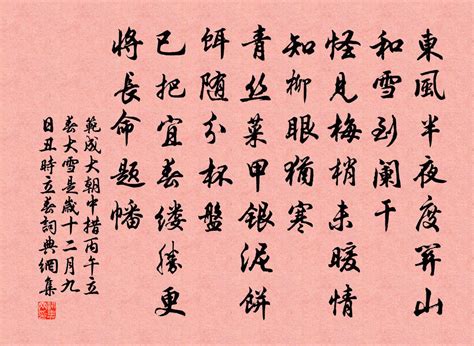 東風半夜度關山
和雪到闌干
怪見梅梢未暖情
知柳眼猶寒
青丝菜甲銀泥餅
餌随分杯盤
已把宜春缕勝更
將長命題幡
範成大朝中措丙午立
春大雪是歲十二月九
日丑時立春詞典網集